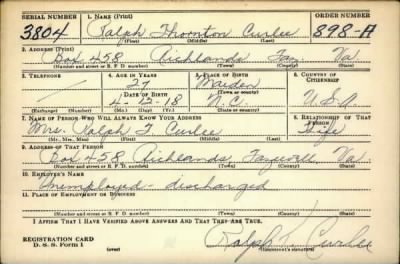 SERIAL NUMBER 1. NAME (Print) ORDER NUMBER
3804 Ralph Thornton Curlee 898-A
(First) (Middle) (Last)
2. ADDRESS (Print)
Box 458 Richlands Taz Va
(Number and street or R. F. D. number) (Town) (County) (State)
3. TELEPHONE 4. AGE IN YEARS 5. PLACE OF BIRTH 6. COUNTRY OF CITIZENSHIP
27 Maiden
DATE OF BIRTH (Town or county)
4-12-18 N.C. U.S.A.
(Exchange) (Number) (Mo.) (Day) (Yr.) (State or country)
7. NAME OF PERSON WHO WILL ALWAYS KNOW YOUR ADDRESS 8. RELATIONSHIP OF THAT PERSON
Mrs. Ralph T Curlee Wife
(Mr., Mrs., Miss) (First) (Middle) (Last)
9. ADDRESS OF THAT PERSON
Box 458 Richlands, Tazewell Va
(Number and street or R. F. D. number) (Town) (County) (State)
10. EMPLOYER'S NAME
Unemployed - discharged
11. PLACE OF EMPLOYMENT OR BUSINESS
(Number and street or R. F. D. number) (Town) (County) (State)
I AFFIRM THAT I HAVE VERIFIED ABOVE ANSWERS AND THAT THEY ARE TRUE.
REGISTRATION CARD
D. S. S. Form 1 (over) Ralph T. Curlee
(Registrant's signature)